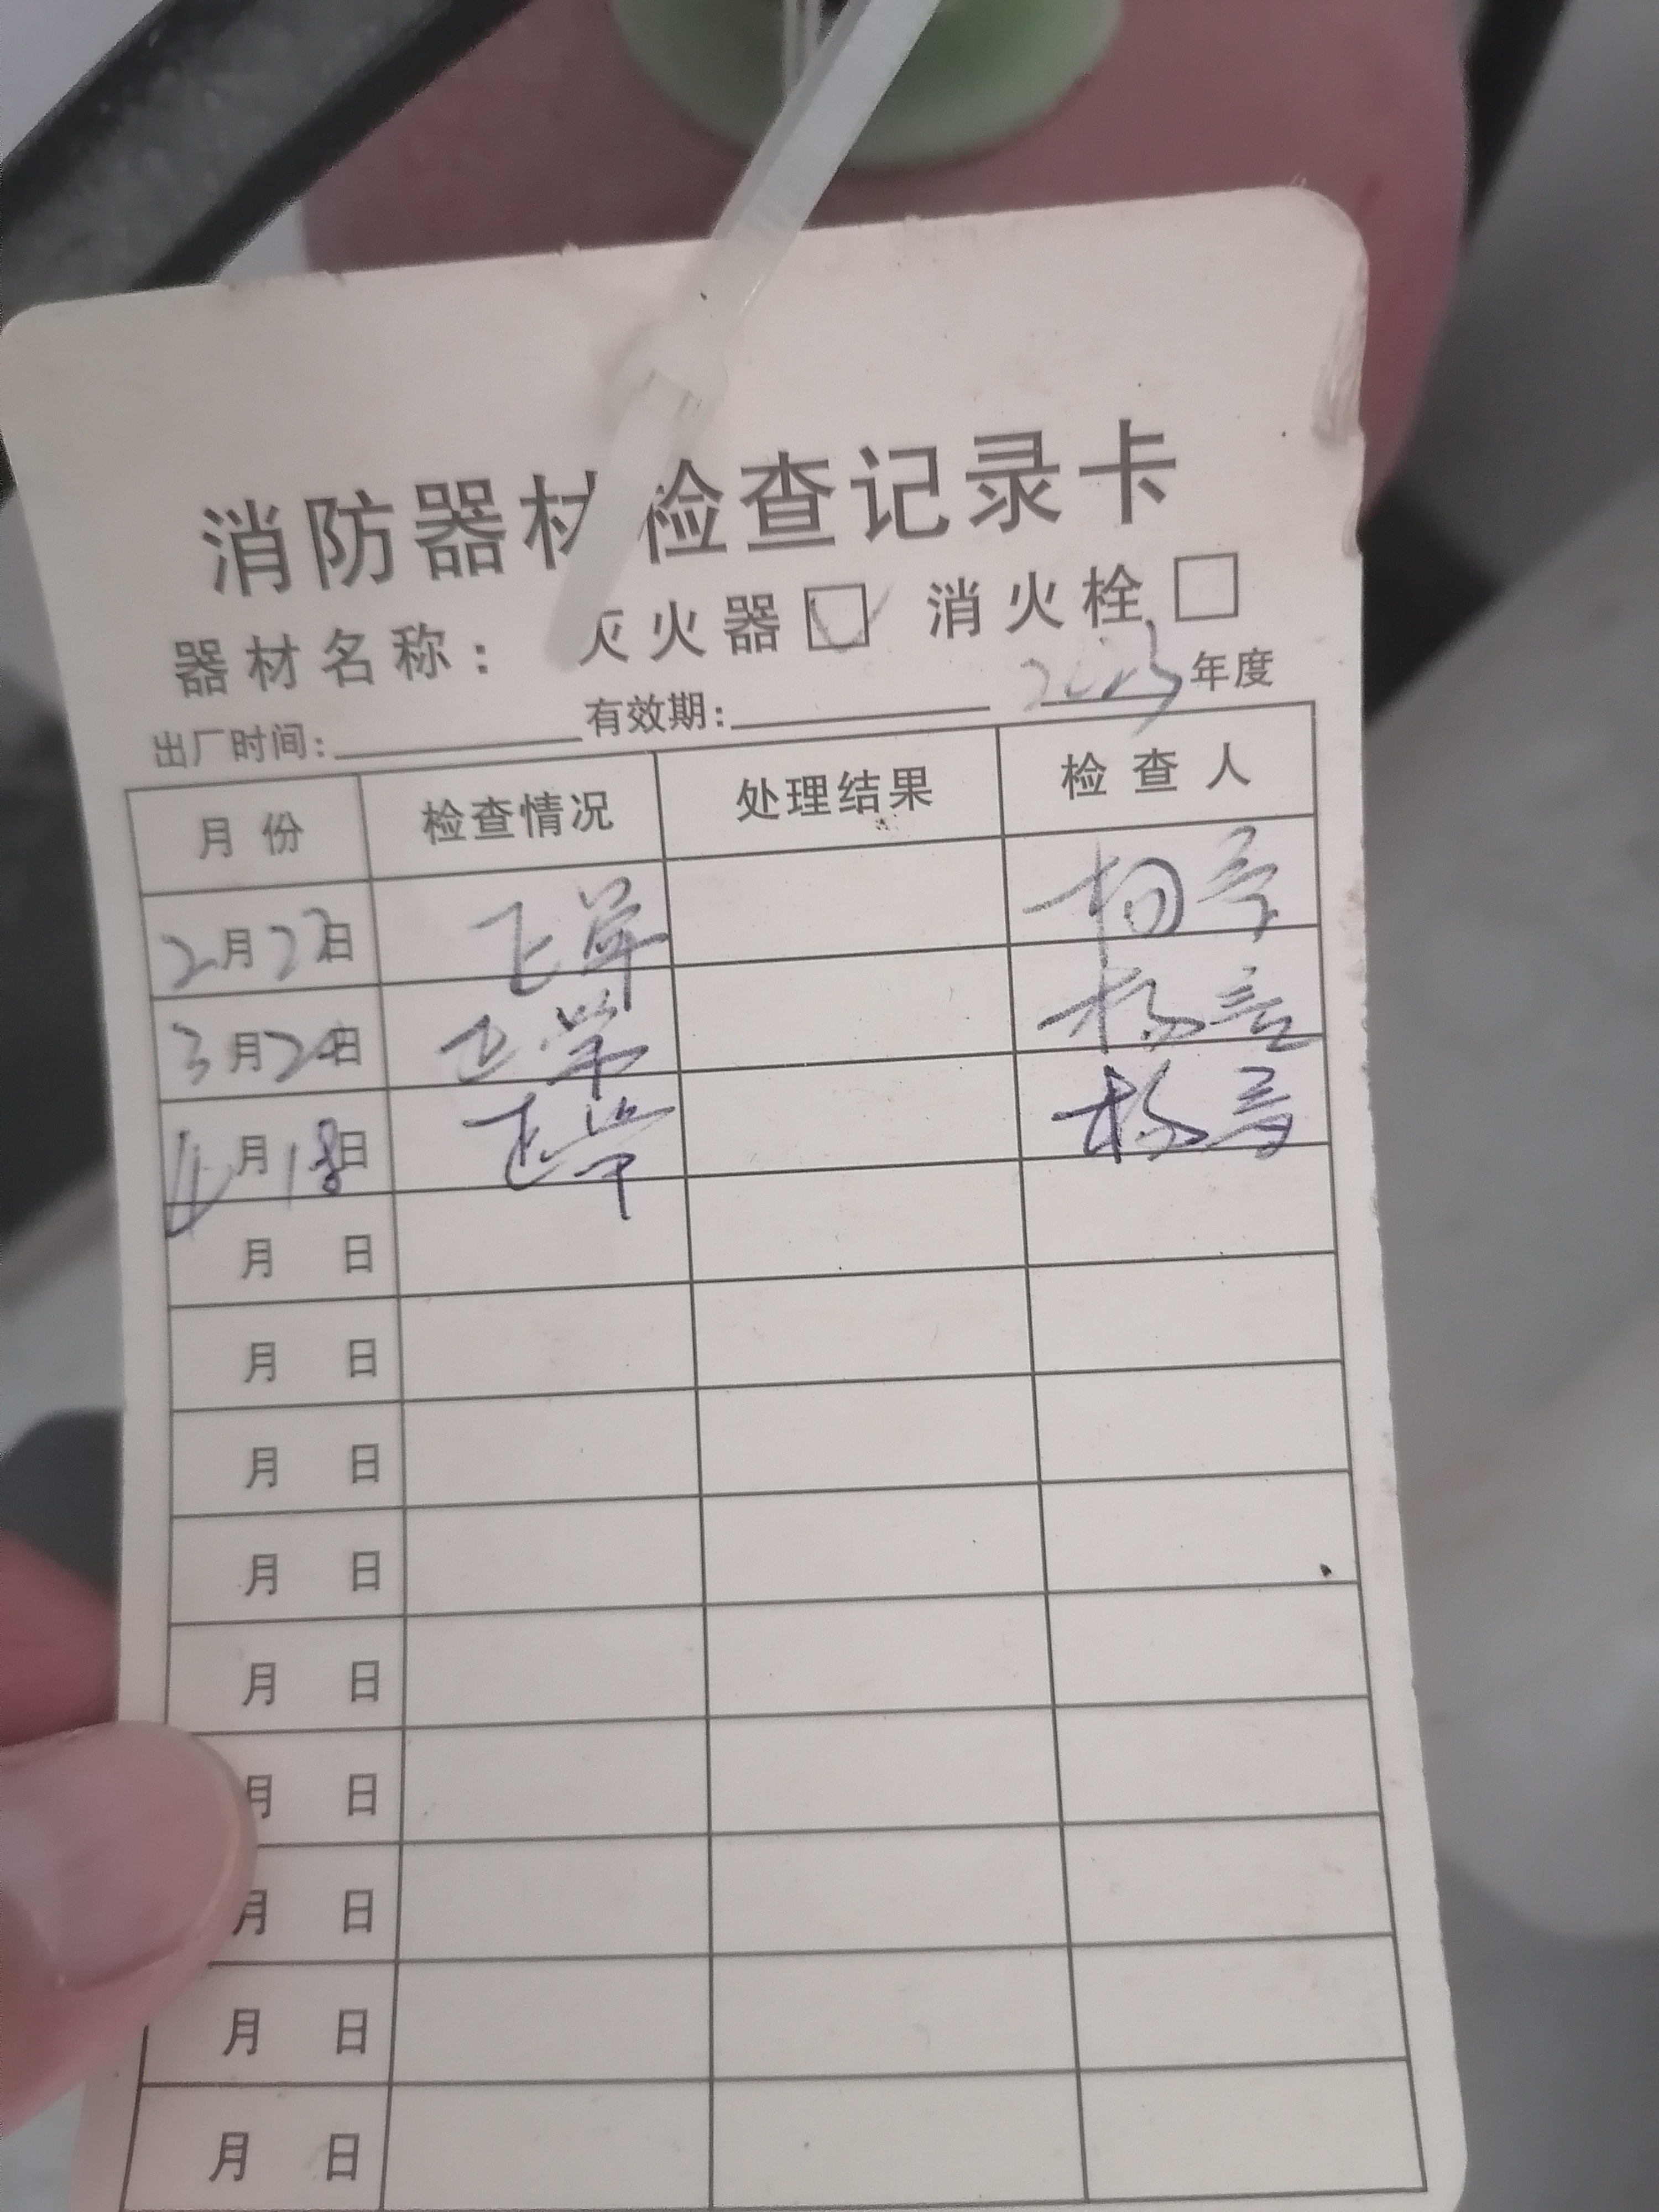 消防器材检查记录卡
器材名称: 灭火器 消火栓
出厂时间: 有效期: 2023年度
月份 检查情况 处理结果 检查人
2月22日 正常
3月24日 正常
4月18日 正常
月 日
月 日
月 日
月 日
月 日
月 日
月 日
月 日
月 日